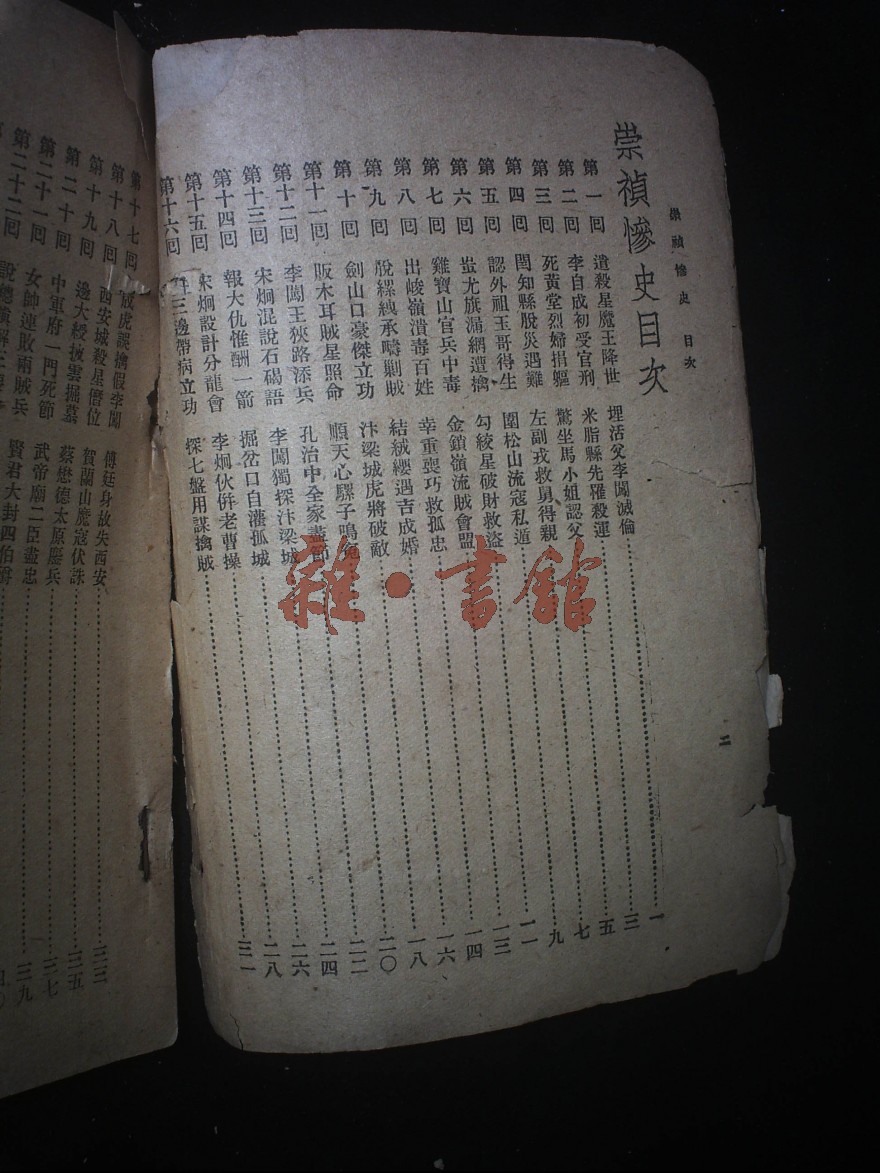 崇禎慘史 目次
崇禎慘史目次
第一回 遣殺星魔王降世 埋活父李闖滅倫 一
第二回 李自成初受官刑 米脂縣先罹殺運 三
第三回 死黃堂烈婦捐軀 驚坐馬小姐認父 五
第四回 閨知縣脫災遇難 左副戎救舅得親 七
第五回 認外祖玉哥得生 圍松山流寇私遁 九
第六回 蚩尤旗漏網遭擒 勾絞星破財救盜 一一
第七回 雞寶山官兵中毒 金鎖嶺流賊會盟 一三
第八回 出峻嶺潰毒百姓 幸重喪巧救孤忠 一四
第九回 脫縲絏承疇剿賊 結絨纓遇吉成婚 一六
第十回 劍山口豪傑立功 汴梁城虎將破敵 一八
第十一回 販木耳賊星照命 順天心騾子鳴冤 二〇
第十二回 李闖王狹路添兵 孔治中全家盡節 二二
第十三回 宋炯混說石碣語 李闖獨探汴梁城 二四
第十四回 報大仇惟酬一箭 掘岔口自灌孤城 二六
第十五回 宋炯設計分龍會 李炯伙併老曹操 二八
第十六回 三邊帶病立功 探七盤用謀擒賊 三一
二
第十七回 成虎誤擒假李闖 傅廷身故失西安 三三
第十八回 西安城殺星僭位 賀蘭山魔寇伏誅 三五
第十九回 邊大綬掖雲掘墓 蔡懋德太原鏖兵 三七
第二十回 中軍府一門死節 武帝廟二臣盡忠 三九
第二十一回 女帥連敗兩賊兵 賢君大封四伯爵
第二十二回
雜·書館